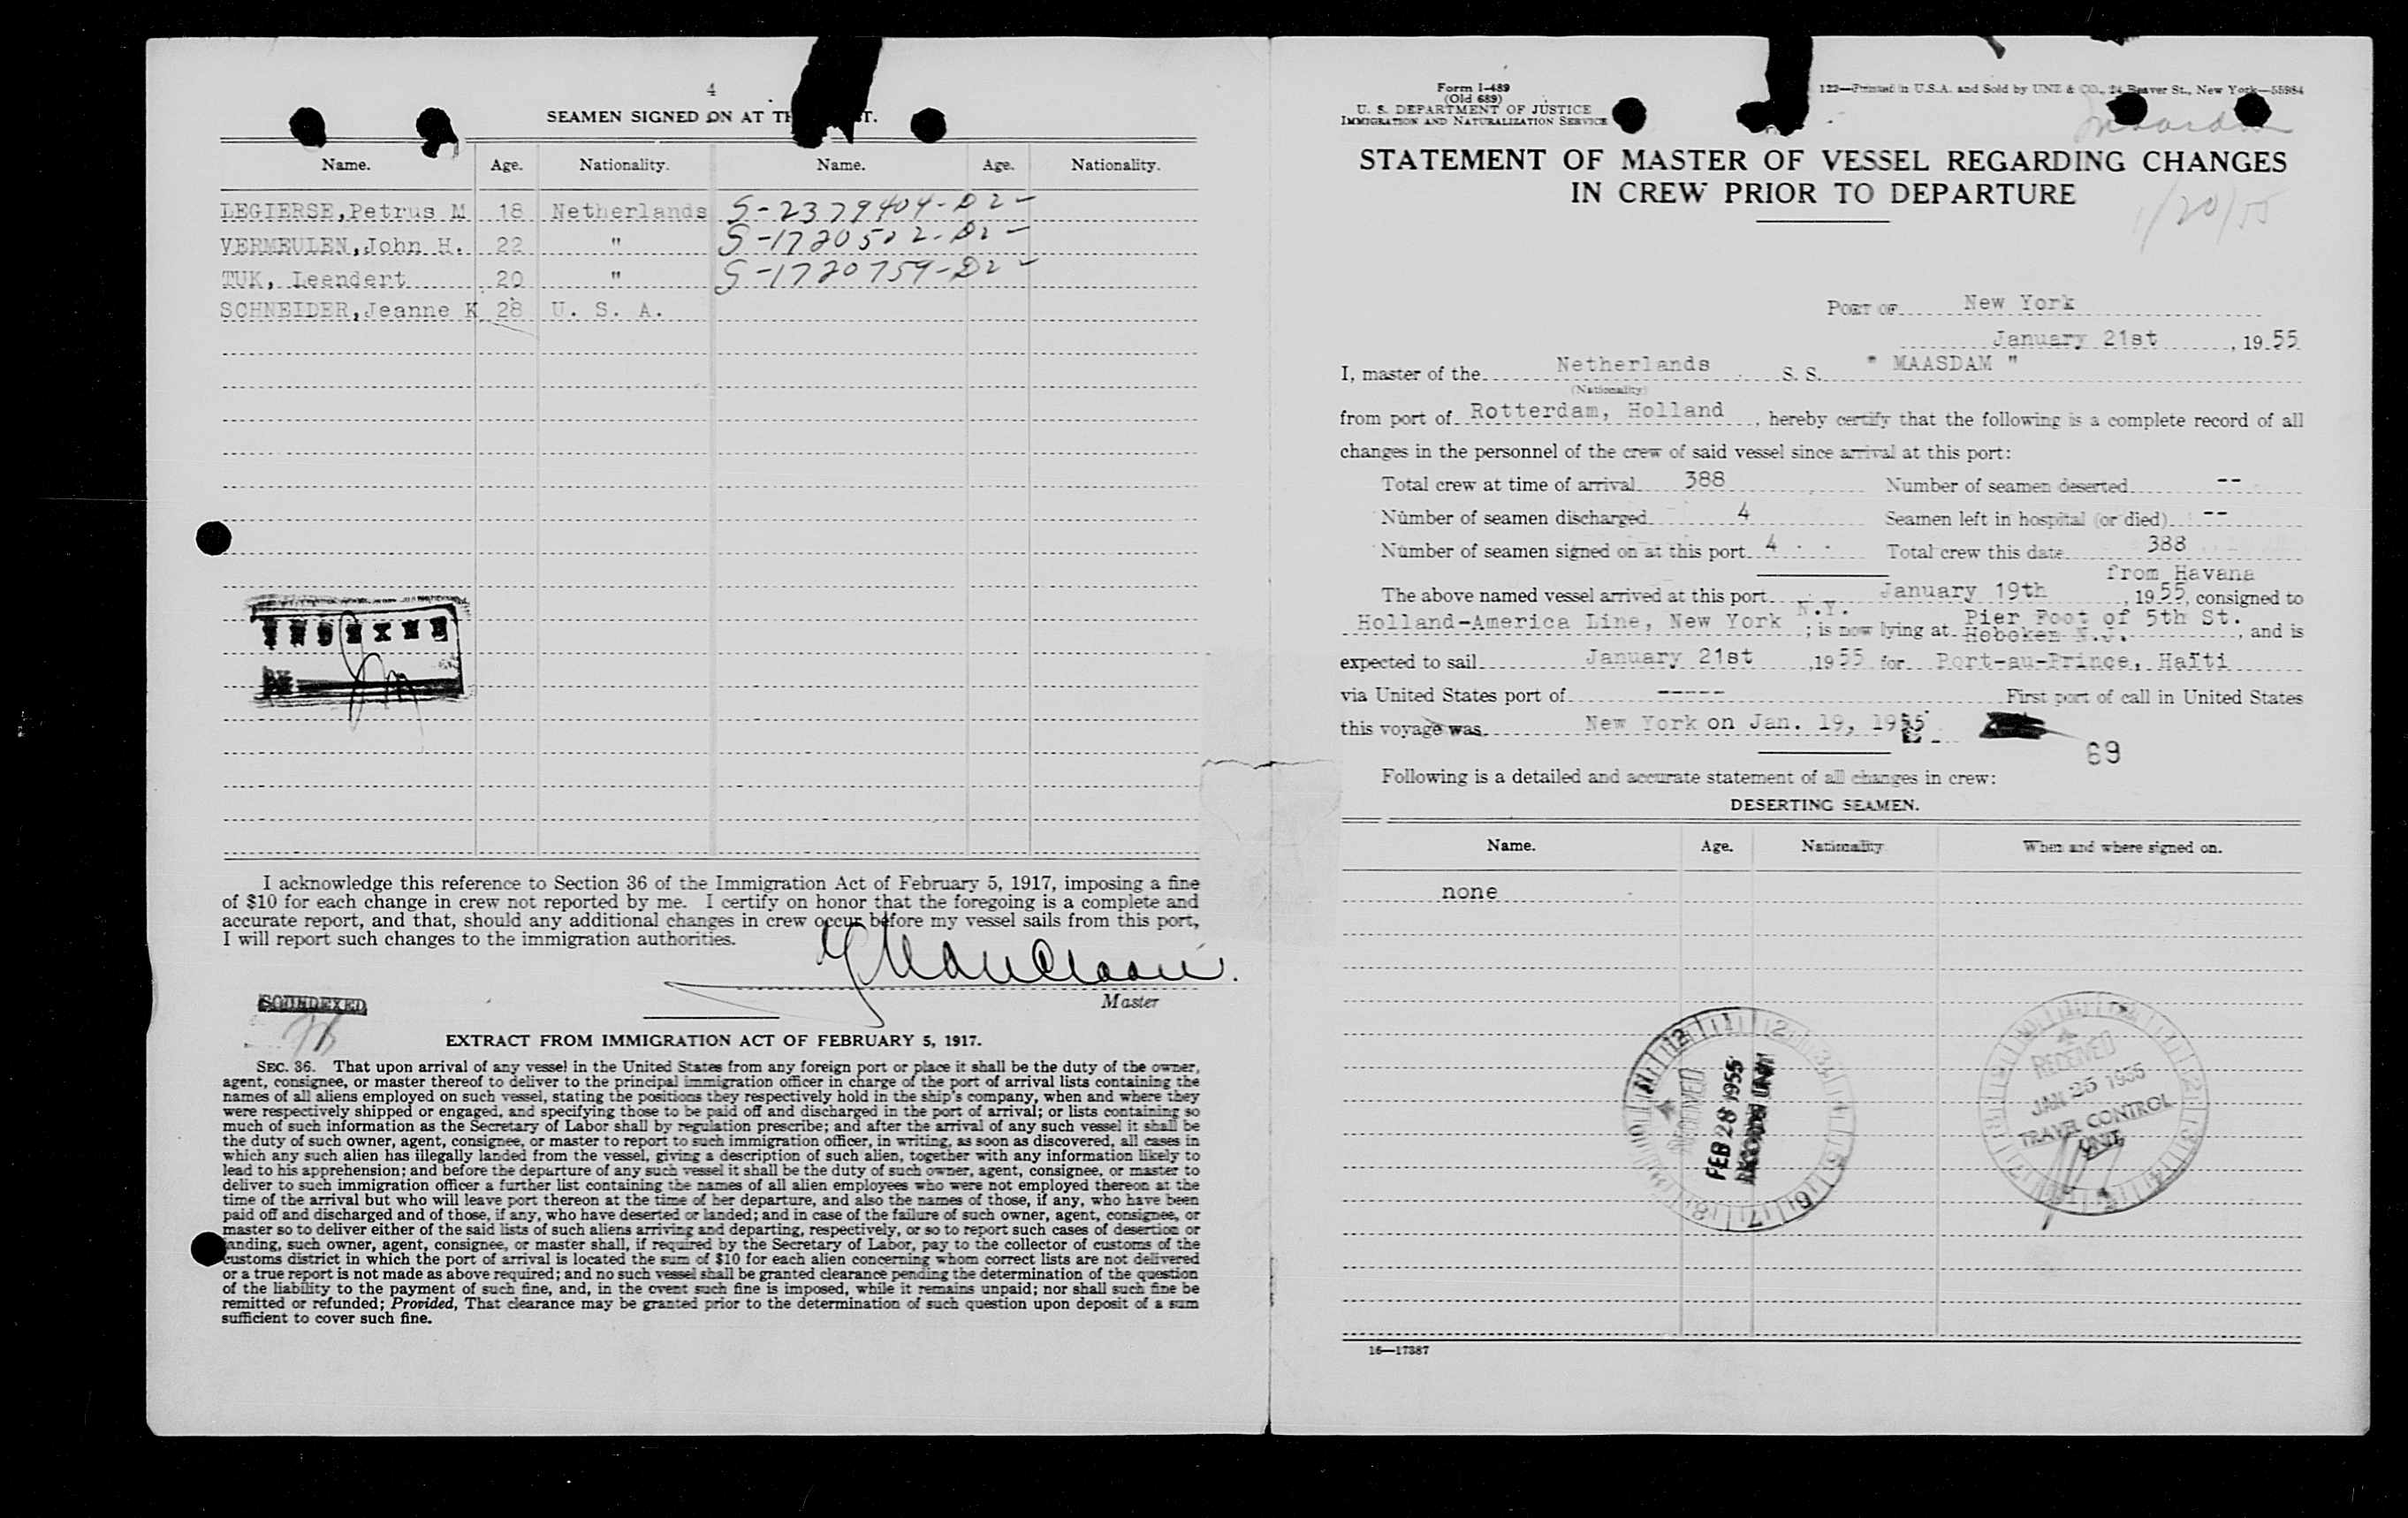 4
SEAMEN SIGNED ON AT TH T.
Name. Age. Nationality. Name. Age. Nationality.
LEGIERSE, Petrus M 18 Netherlands S-2379404-D2-
VERMEULEN, John H. 22 "
TUK, Leendert 20 " S-1720759-D2-
SCHNEIDER, Jeanne K 28 U. S. A.
I acknowledge this reference to Section 36 of the Immigration Act of February 5, 1917, imposing a fine
of $10 for each change in crew not reported by me. I certify on honor that the foregoing is a complete and
accurate report, and that, should any additional changes in crew occur before my vessel sails from this port,
I will report such changes to the immigration authorities.
Master
SOUNDEXED
EXTRACT FROM IMMIGRATION ACT OF FEBRUARY 5, 1917.
SEC. 36. That upon arrival of any vessel in the United States from any foreign port or place it shall be the duty of the owner,
agent, consignee, or master thereof to deliver to the principal immigration officer in charge of the port of arrival lists containing the
names of all aliens employed on such vessel, stating the positions they respectively hold in the ship's company, when and where they
were respectively shipped or engaged, and specifying those to be paid off and discharged in the port of arrival; or lists containing so
much of such information as the Secretary of Labor shall by regulation prescribe; and after the arrival of any such vessel it shall be
the duty of such owner, agent, consignee, or master to report to such immigration officer, in writing, as soon as discovered, all cases in
which any such alien has illegally landed from the vessel, giving a description of such alien, together with any information likely to
lead to his apprehension; and before the departure of any such vessel it shall be the duty of such owner, agent, consignee, or master to
deliver to such immigration officer a further list containing the names of all alien employees who were not employed thereon at the
time of the arrival but who will leave port thereon at the time of her departure, and also the names of those, if any, who have been
paid off and discharged and of those, if any, who have deserted or landed; and in case of the failure of such owner, agent, consignee, or
master so to deliver either of the said lists of such aliens arriving and departing, respectively, or so to report such cases of desertion or
landing, such owner, agent, consignee, or master shall, if required by the Secretary of Labor, pay to the collector of customs of the
customs district in which the port of arrival is located the sum of $10 for each alien concerning whom correct lists are not delivered
or a true report is not made as above required; and no such vessel shall be granted clearance pending the determination of the question
of the liability to the payment of such fine, and, in the event such fine is imposed, while it remains unpaid; nor shall such fine be
remitted or refunded; Provided, That clearance may be granted prior to the determination of such question upon deposit of a sum
sufficient to cover such fine.
Form I-489
(Old 689)
U. S. DEPARTMENT OF JUSTICE
IMMIGRATION AND NATURALIZATION SERVICE
122—Printed in U.S.A. and Sold by UNZ & CO., 24 Beaver St., New York—55984
Maasdam
STATEMENT OF MASTER OF VESSEL REGARDING CHANGES
IN CREW PRIOR TO DEPARTURE
1/20/55
PORT OF New York
January 21st, 1955
I, master of the Netherlands S. S. " MAASDAM "
(Nationality)
from port of Rotterdam, Holland, hereby certify that the following is a complete record of all
changes in the personnel of the crew of said vessel since arrival at this port:
Total crew at time of arrival 388 Number of seamen deserted --
Number of seamen discharged 4 Seamen left in hospital (or died) --
Number of seamen signed on at this port 4 Total crew this date 388
from Havana
The above named vessel arrived at this port January 19th, 1955, consigned to
Holland-America Line, New York N.Y.; is now lying at Pier Foot of 5th St. Hoboken N.J., and is
expected to sail January 21st, 1955 for Port-au-Prince, Haïti
via United States port of ----- First port of call in United States
this voyage was New York on Jan. 19, 1955
69
Following is a detailed and accurate statement of all changes in crew:
DESERTING SEAMEN.
Name. Age. Nationality When and where signed on.
none
RECEIVED
FEB 28 1955
RECORDS UNIT
RECEIVED
JAN 25 1955
TRAVEL CONTROL
UNIT
16—17387